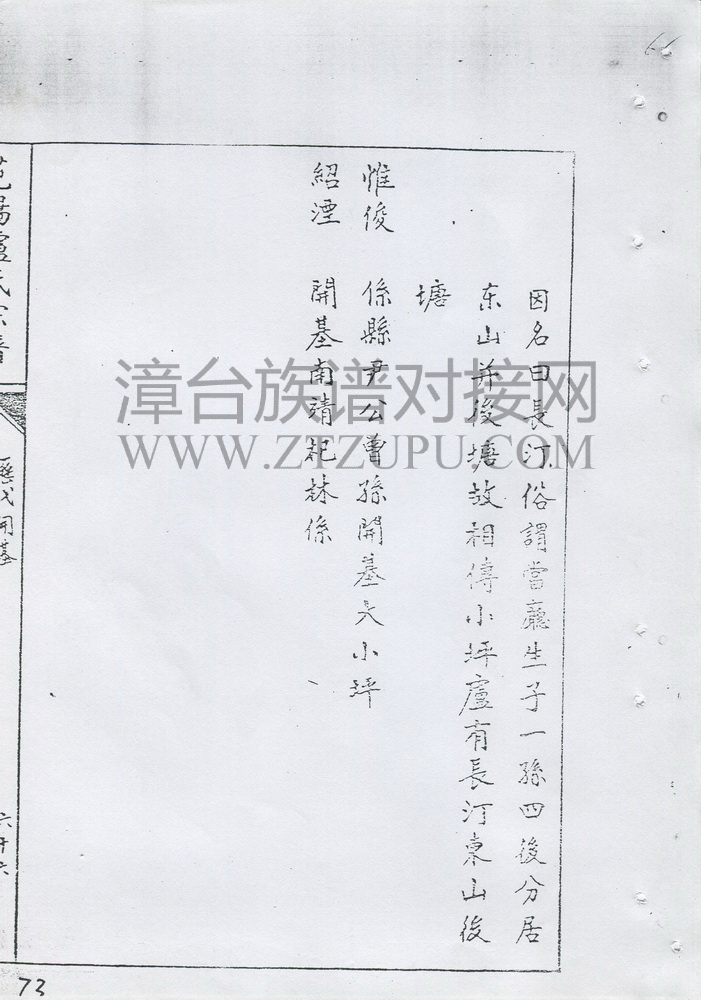 因名曰長汀俗謂當廳生子一孫四後分居
东山并後塘故相傳小坪廬有長汀東山後
塘
惟俊 係縣尹公曾孫開基大小坪
紹湮 開基南靖杞林係
范陽盧氏宗譜
歷代開基
六十六
漳台族谱对接网
WWW.ZTZUPU.COM
73
66